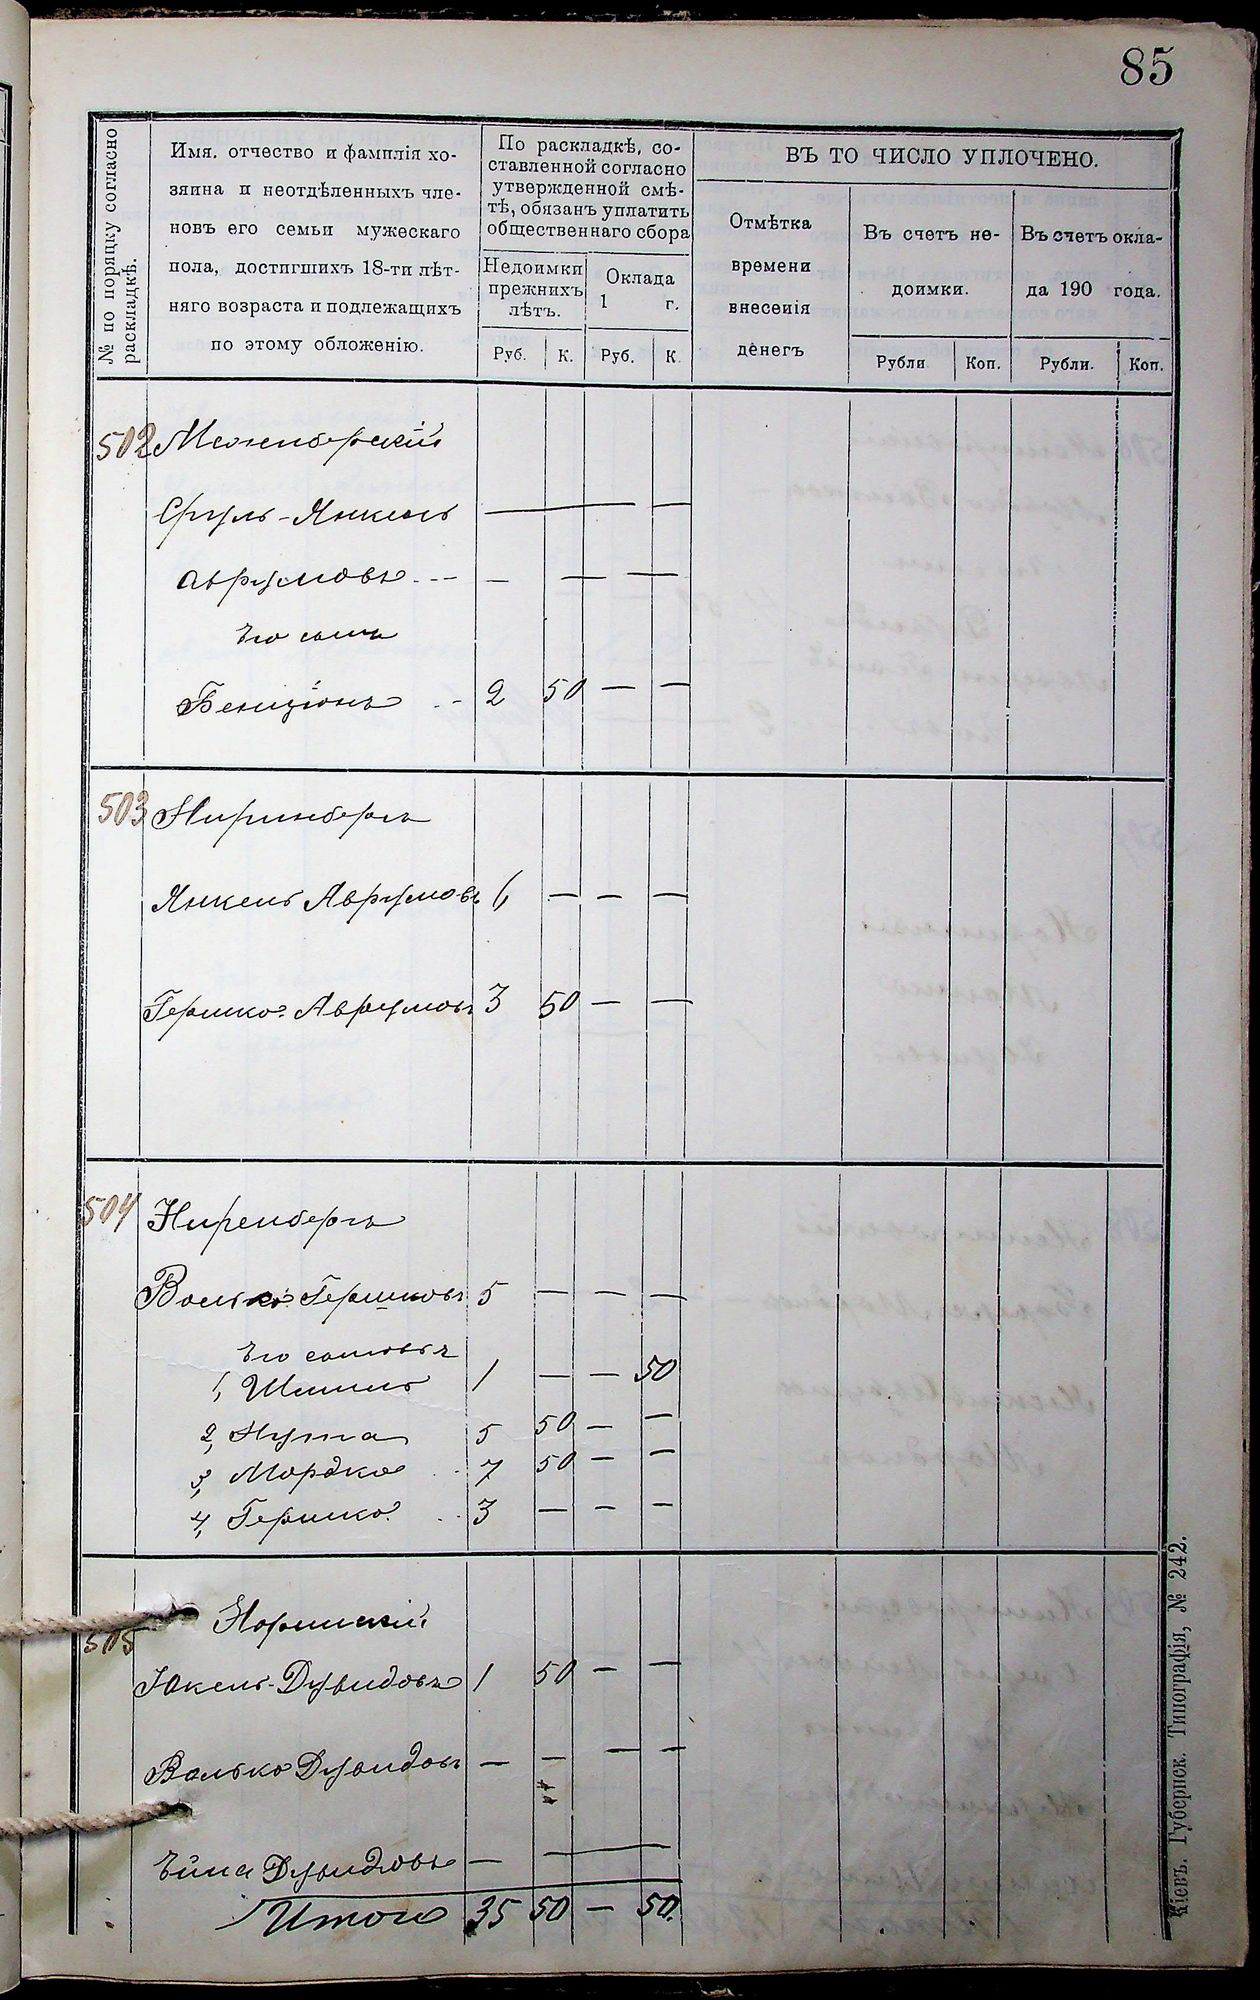 85
№ по поряцку согласно
раскладкѣ.
Имя, отчество и фамплія хо-
зяина и неотдѣленныхъ чле-
новъ его семьи мужескаго
пола, достигшихъ 18-ти лѣт-
няго возраста и подлежащихъ
по этому обложенію.
По раскладкѣ, со-
ставленной согласно
утвержденной смѣ-
тѣ, обязанъ уплатить
общественнаго сбора
Недоимки
прежнихъ
лѣтъ.
Оклада
1 г.
Руб. К. Руб. К.
ВЪ ТО ЧИСЛО УПЛОЧЕНО.
Отмѣтка
времени
внесенія
денегъ
Въ счетъ не-
доимки.
Рубли Коп.
Въ счетъ окла-
да 190 года.
Рубли. Коп.
502 Меженберскій
Сруль-Янкель — —
Аврумовъ — — —
Его сынъ
Бенціонъ 2 50 — —
503 Ниринбергъ
Янкель Аврумовъ 6 — — —
Гершко Аврумовъ 3 50 — —
504 Ниренбергъ
Волько Гершковъ 5 — — —
Его сыновья
1, Шмиль 1 — — 50
2, Нута 5 50 — —
3, Мордко 7 50 — —
4, Гершко 3 — — —
505 Норинскій
Іокель-Дувидовъ 1 50 — —
Волько Дувидовъ — — — —
Дувидовъ — —
Итого 35 50 — 50.
Кіевъ. Губернск. Типографія, № 242.